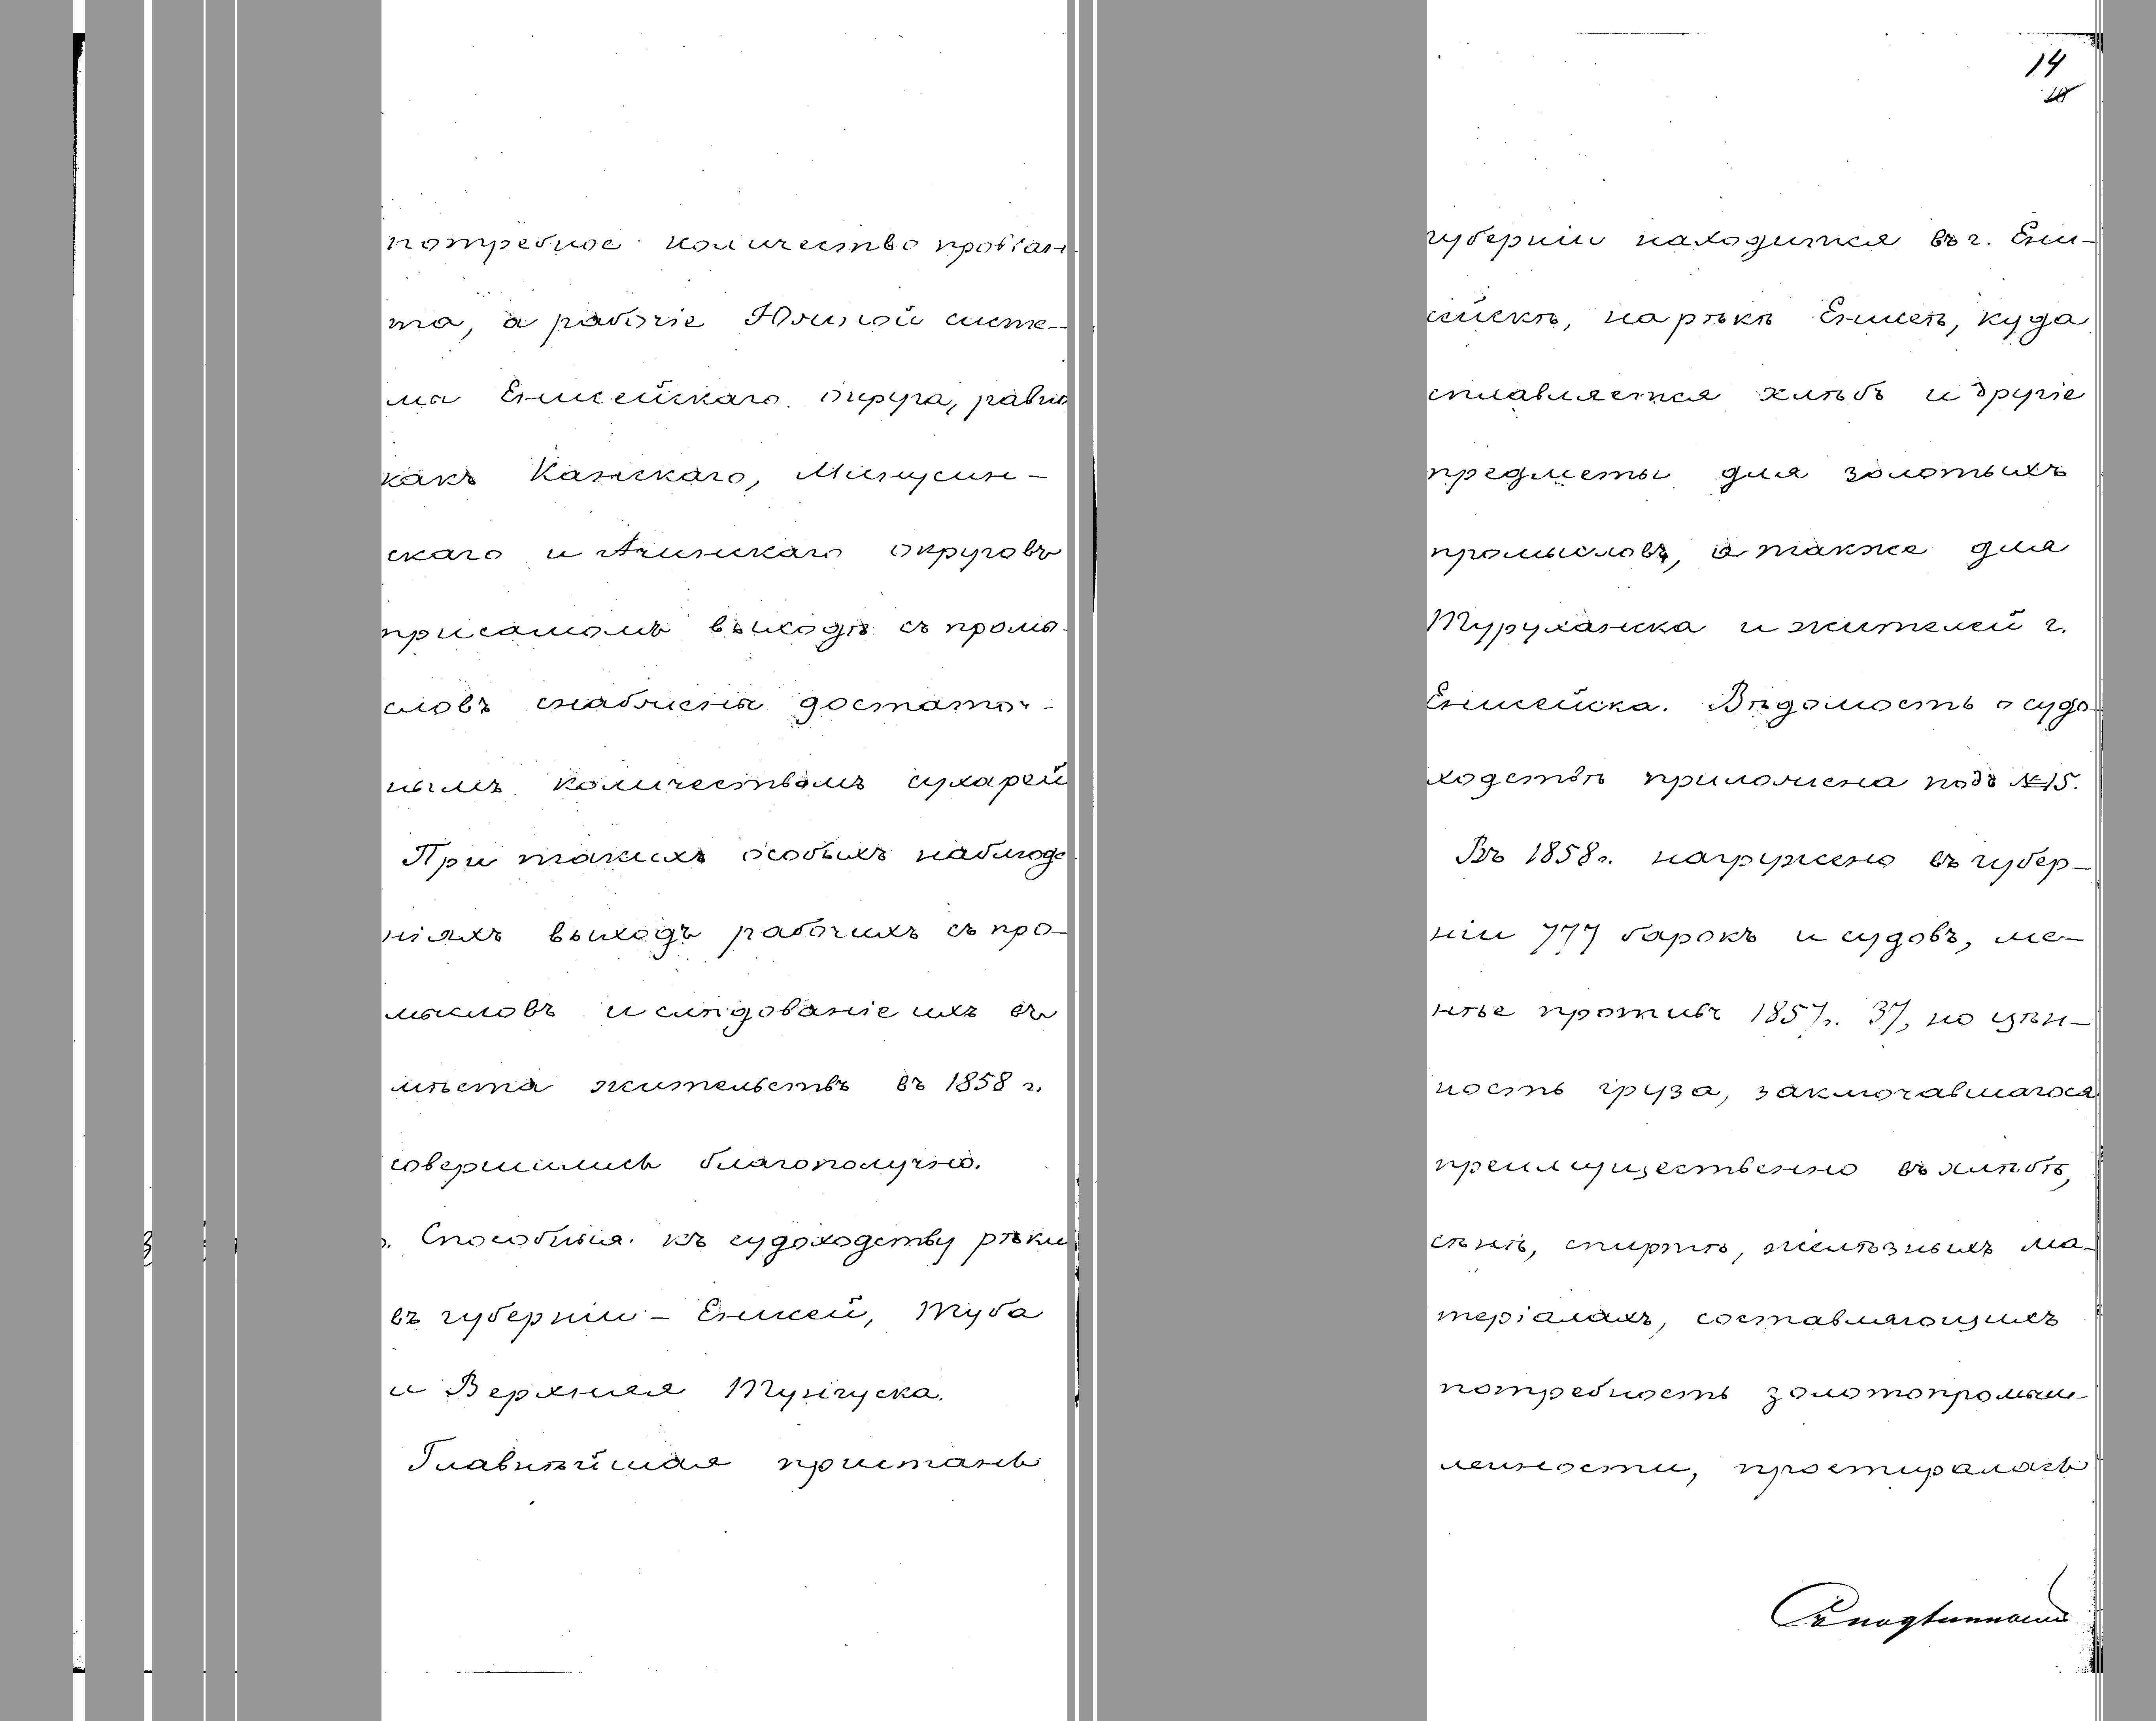 потребное количество провіан
та, а рабочіе Южной систе-
мы Енисейскаго округа, равно
какъ Канскаго, Минусин-
скаго и Ачинскаго округовъ
при самомъ выходѣ съ промы-
словъ снабжены достаточ-
нымъ количествомъ сухарей
При такихъ особыхъ наблюде
ніяхъ выходъ рабочихъ съ про-
мысловъ и слѣдованіе ихъ въ
мѣста жительствъ въ 1858 г.
совершились благополучно.
Способныя къ судоходству рѣки
въ губерніи - Енисей, Туба
и Верхняя Тунгуска.
Главнѣйшая пристань
14
10
губерніи находится въ г. Ени-
сейскѣ, на рѣкѣ Енисеѣ, куда
сплавляется хлѣбъ и другіе
предметы для золотыхъ
промысловъ, а также для
Туруханска и жителей г.
Енисейска. Вѣдомость о судо-
ходствѣ приложена подъ № 15.
Въ 1858 г. нагружено въ губер-
ніи 777 барокъ и судовъ, ме-
нѣе противъ 1857 г. 37, но цѣн-
ность груза, заключавшагося
преимущественно въ хлѣбѣ,
сѣнѣ, спиртѣ, желѣзныхъ ма-
теріалахъ, составляющихъ
потребность золотопромыш-
ленности, простиралась
Съ подлиннымъ